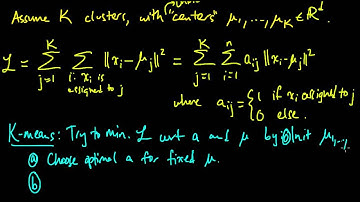 Assume K clusters, with "centers" μ₁,...,μ_K ∈ ℝᵈ.
ℒ = Σ_{j=1}^{K} Σ_{i: x_i is assigned to j} ‖x_i − μ_j‖² = Σ_{j=1}^{K} Σ_{i=1}^{n} a_{ij} ‖x_i − μ_j‖²
where a_{ij} = {1 if x_i assigned to j
0 else.
K-means: Try to min. ℒ wrt a and μ by: ⓪ Init μ₁,...
ⓐ Choose optimal a for fixed μ.
ⓑ